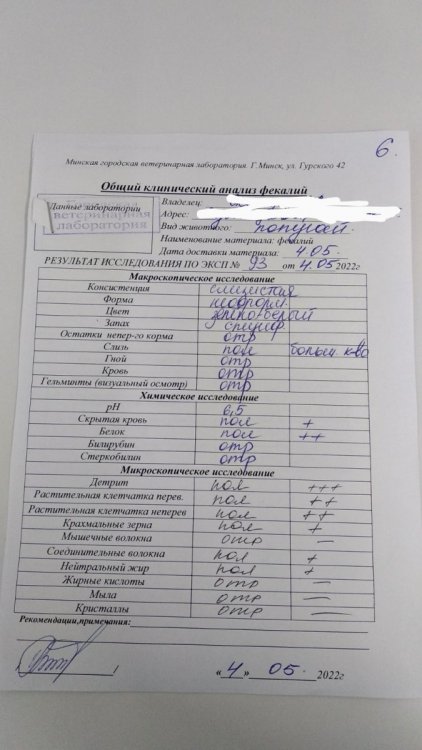 6.
Минская городская ветеринарная лаборатория. Г.Минск, ул. Гурского 42
Общий клинический анализ фекалий
Данные лаборатории
ветеринарная
лаборатория
Владелец:
Адрес:
Вид животного: попугай
Наименование материала: фекалий
Дата доставки материала: 4.05.
РЕЗУЛЬТАТ ИССЛЕДОВАНИЯ ПО ЭКСП № 93 от 4.05.2022г
Макроскопическое исследование
Консистенция слизистая
Форма неоформ.
Цвет зелено-белый
Запах специф.
Остатки непер-го корма отр
Слизь пол больш. к-во
Гной отр
Кровь отр
Гельминты (визуальный осмотр) отр
Химическое исследование
pH 6,5
Скрытая кровь пол +
Белок пол ++
Билирубин отр
Стеркобилин отр
Микроскопическое исследование
Детрит пол +++
Растительная клетчатка перев. пол ++
Растительная клетчатка неперев пол ++
Крахмальные зерна пол +
Мышечные волокна отр —
Соединительные волокна пол +
Нейтральный жир пол +
Жирные кислоты отр —
Мыла отр —
Кристаллы отр —
Рекомендации,примечания:
«4» 05. 2022г